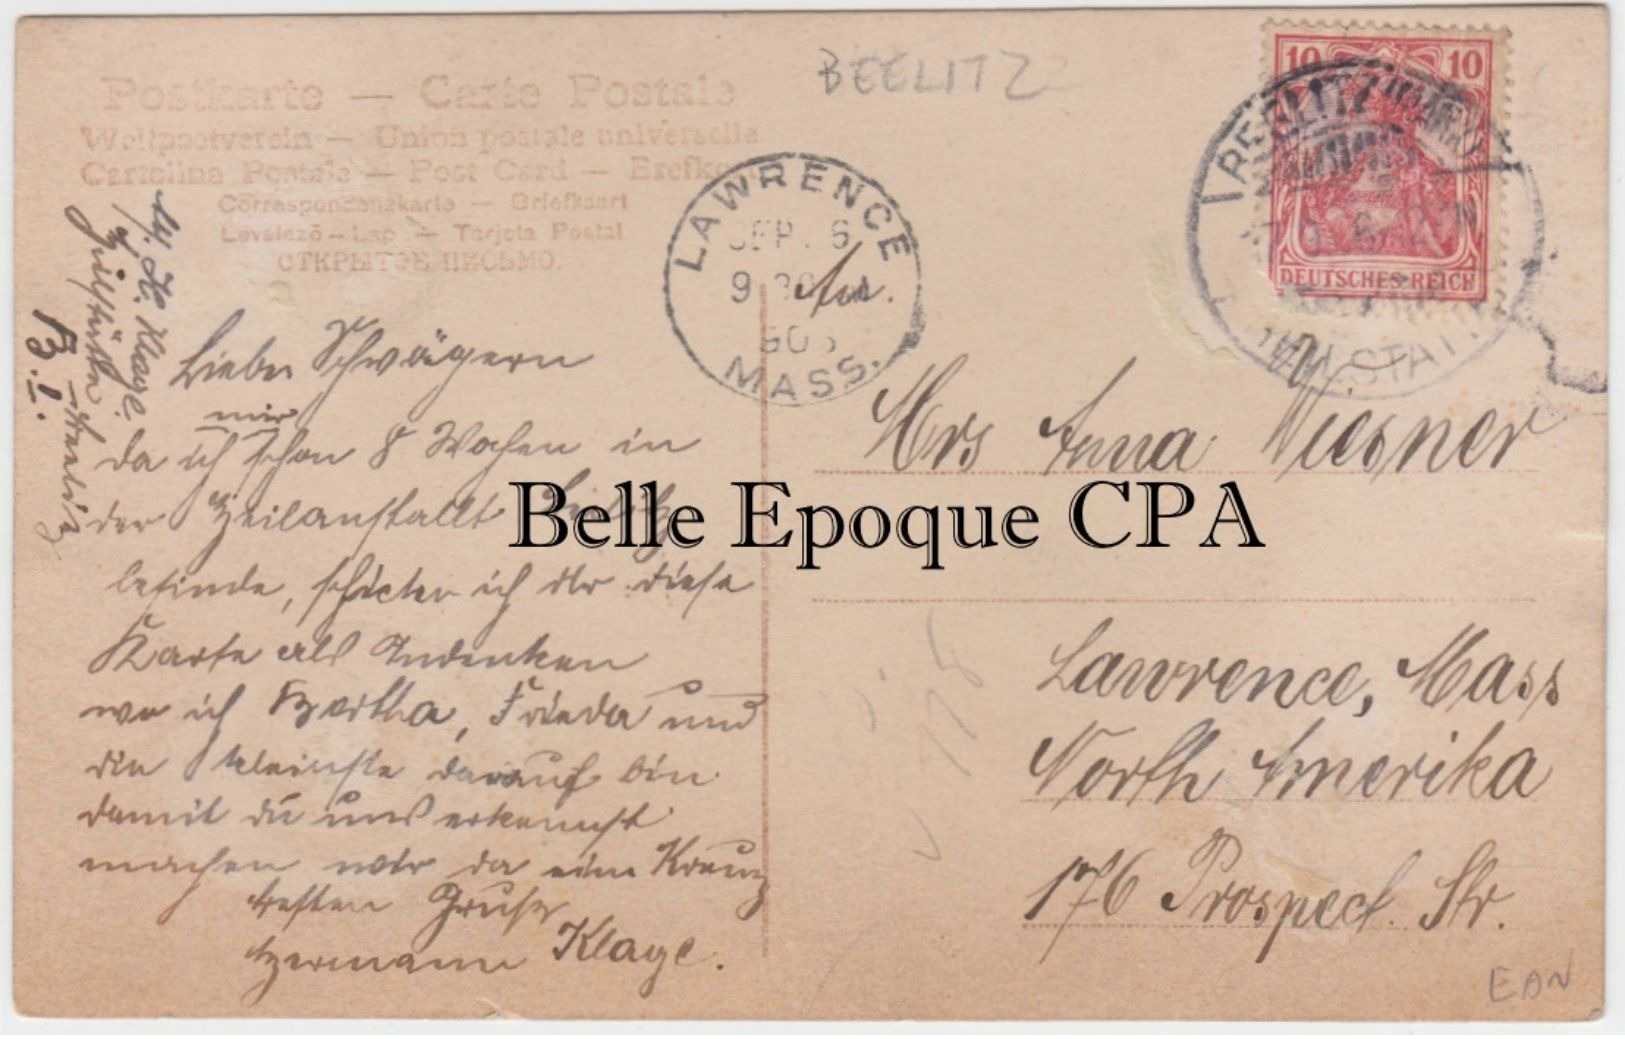 BEELITZ
Postkarte — Carte Postale
Weltpostverein — Union postale universelle
Cartolina Postale — Post Card — Brefkort
Correspondenzkarte — Briefkaart
Levelező-Lap — Tarjeta Postal
ОТКРЫТОЕ ПИСЬМО.
10 10
DEUTSCHES REICH
BEELITZ (MARK)
HEILSTÄT
LAWRENCE
SEP. 6
9
MASS.
H. Klage.
Heilstätte
Beelitz
B. I.
An.
Mrs Anna Wiesner
Lawrence, Mass
North Amerika
176 Prospect. Str.
Liebe Schwägern
mir
da ich schon 8 Wochen in
der Heilanstallt Beelitz
befinde, schicke ich dir diese
Karte als Andenken
wo ich Bertha, Frieda und
die kleinste darauf bin
damit du uns erkennst
machen wir da ein Kreuz
besten Gruss
Hermann Klage.
Belle Epoque CPA
EAN